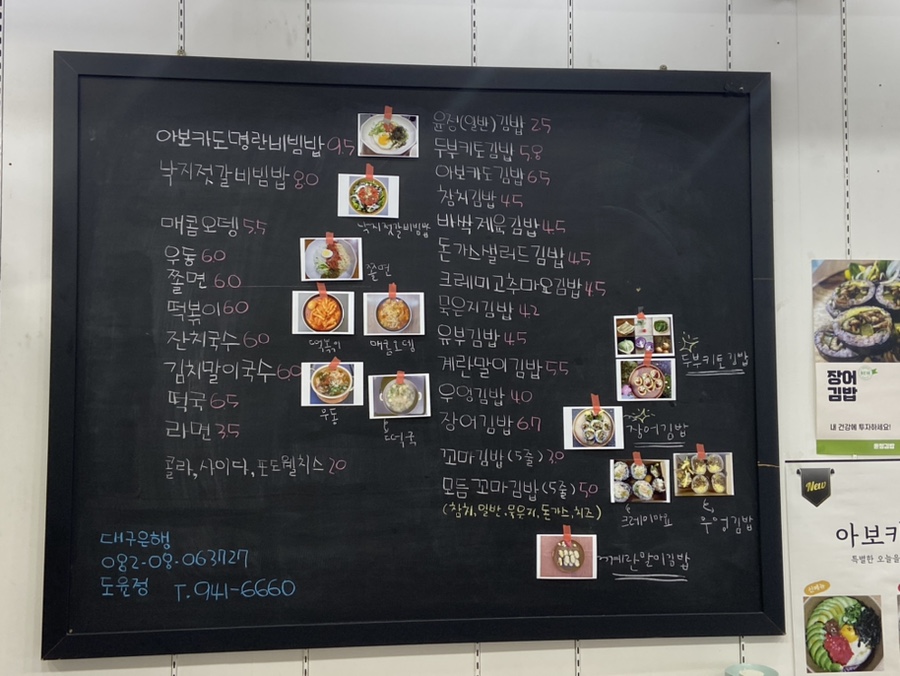 아보카도명란비빔밥 95
낙지젓갈비빔밥 80
매콤오뎅 5.5
우동 6.0
쫄면 6.0
떡볶이 6.0
잔치국수 6.0
김치말이국수 60
떡국 6.5
라면 3.5
콜라, 사이다, 포도웰치스 20
대구은행
082-08-063727
도윤정 T. 941-6660
윤정(일반)김밥 2.5
두부키토김밥 5.8
아보카도김밥 6.5
참치김밥 4.5
바싹제육김밥 4.5
돈가스샐러드김밥 4.5
크레미고추마요김밥 4.5
묵은지김밥 4.2
유부김밥 4.5
계란말이김밥 5.5
우엉김밥 4.0
장어김밥 6.7
꼬마김밥 (5줄) 3.0
모듬 꼬마김밥 (5줄) 5.0
(참치, 일반, 묵은지, 돈가스, 치즈)
낙지젓갈비빔밥
쫄면
떡볶이
매콤오뎅
우동
떡국
두부키토김밥
장어김밥
크레미마요
우엉김밥
계란말이김밥
장어
김밥
내 건강에 투자하세요!
New
아보카
특별한 오늘을
신메뉴